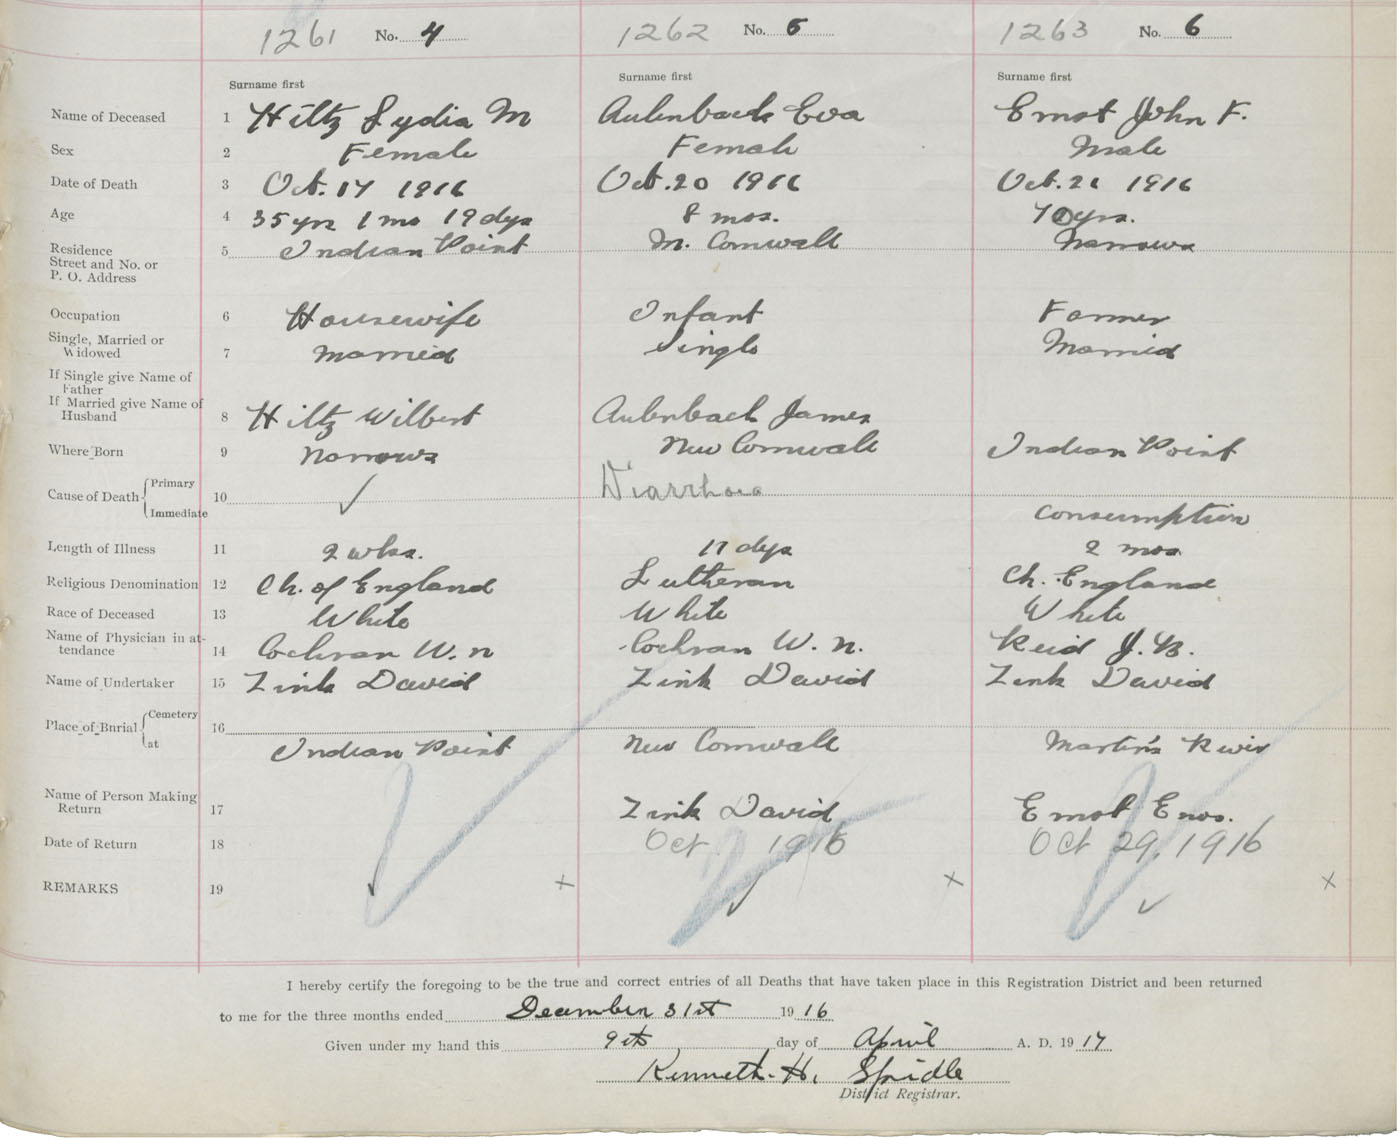 1261 No. 4 1262 No. 5 1263 No. 6
Surname first Surname first Surname first
Name of Deceased 1 Hiltz Lydia M Aulenback Eva Ernst John F.
Sex 2 Female Female Male
Date of Death 3 Oct. 17 1916 Oct. 20 1916 Oct. 26 1916
Age 4 35 yrs 1 mo 19 dys 8 mos. 70 yrs.
Residence
Street and No. or
P. O. Address 5 Indian Point N. Cornwall Narrows
Occupation 6 Housewife Infant Farmer
Single, Married or
Widowed 7 Married Single Married
If Single give Name of
Father
If Married give Name of
Husband 8 Hiltz Wilbert Aulenback James
Where Born 9 Narrows New Cornwall Indian Point
Cause of Death Primary 10 ✓ Diarrhoea
Immediate Consumption
Length of Illness 11 2 wks. 17 dys 2 mos
Religious Denomination 12 Ch. of England Lutheran Ch. England
Race of Deceased 13 White White White
Name of Physician in at-
tendance 14 Cochran W. N Cochran W. N. Reid J. W.
Name of Undertaker 15 Zink David Zink David Zink David
Place of Burial Cemetery 16
at Indian Point New Cornwall Martin's River
Name of Person Making
Return 17 Zink David Ernst Enos.
Date of Return 18 Oct 1916 Oct 29, 1916
REMARKS 19 ✓ x ✓ x ✓ x
I hereby certify the foregoing to be the true and correct entries of all Deaths that have taken place in this Registration District and been returned
to me for the three months ended December 31st 1916
Given under my hand this 9th day of April A. D. 1917
Kenneth. H. Spidle
District Registrar.